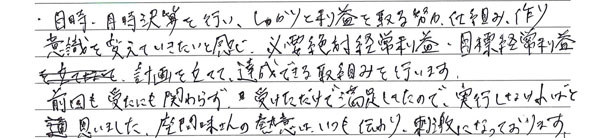 ・日時、月時決算を行い、しっかりと利益を取る努力、仕組み、作り
意識を変えていきたいと感じ、必要絶対経常利益・目標経常利益
計画を立て、達成できる取組みを行います。
前回も受たにも関わらず、受けただけで満足してたので、実行しなければと
思いました。座間味さんの熱意は、いつも伝わり、刺激になっております。